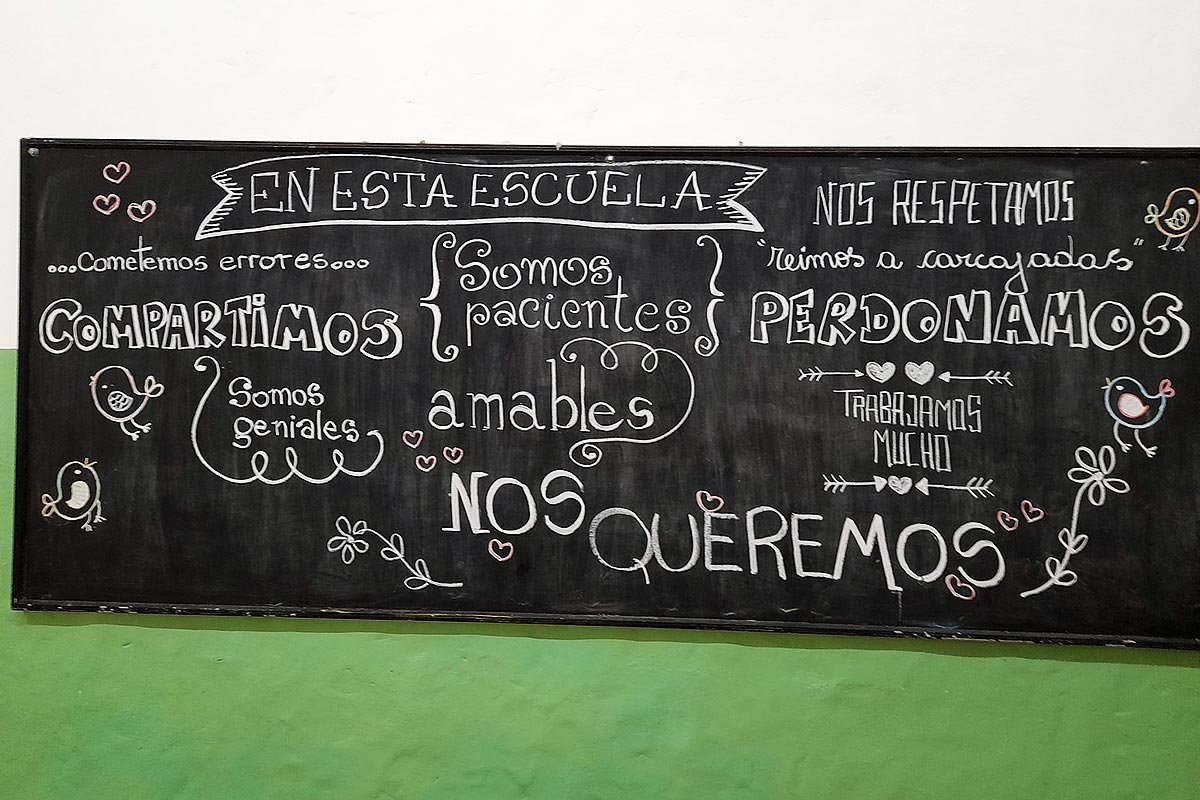 EN ESTA ESCUELA
...Cometemos errores...
COMPARTIMOS
Somos
geniales
Somos
pacientes
amables
NOS RESPETAMOS
"reimos a carcajadas"
PERDONAMOS
TRABAJAMOS
MUCHO
NOS QUEREMOS